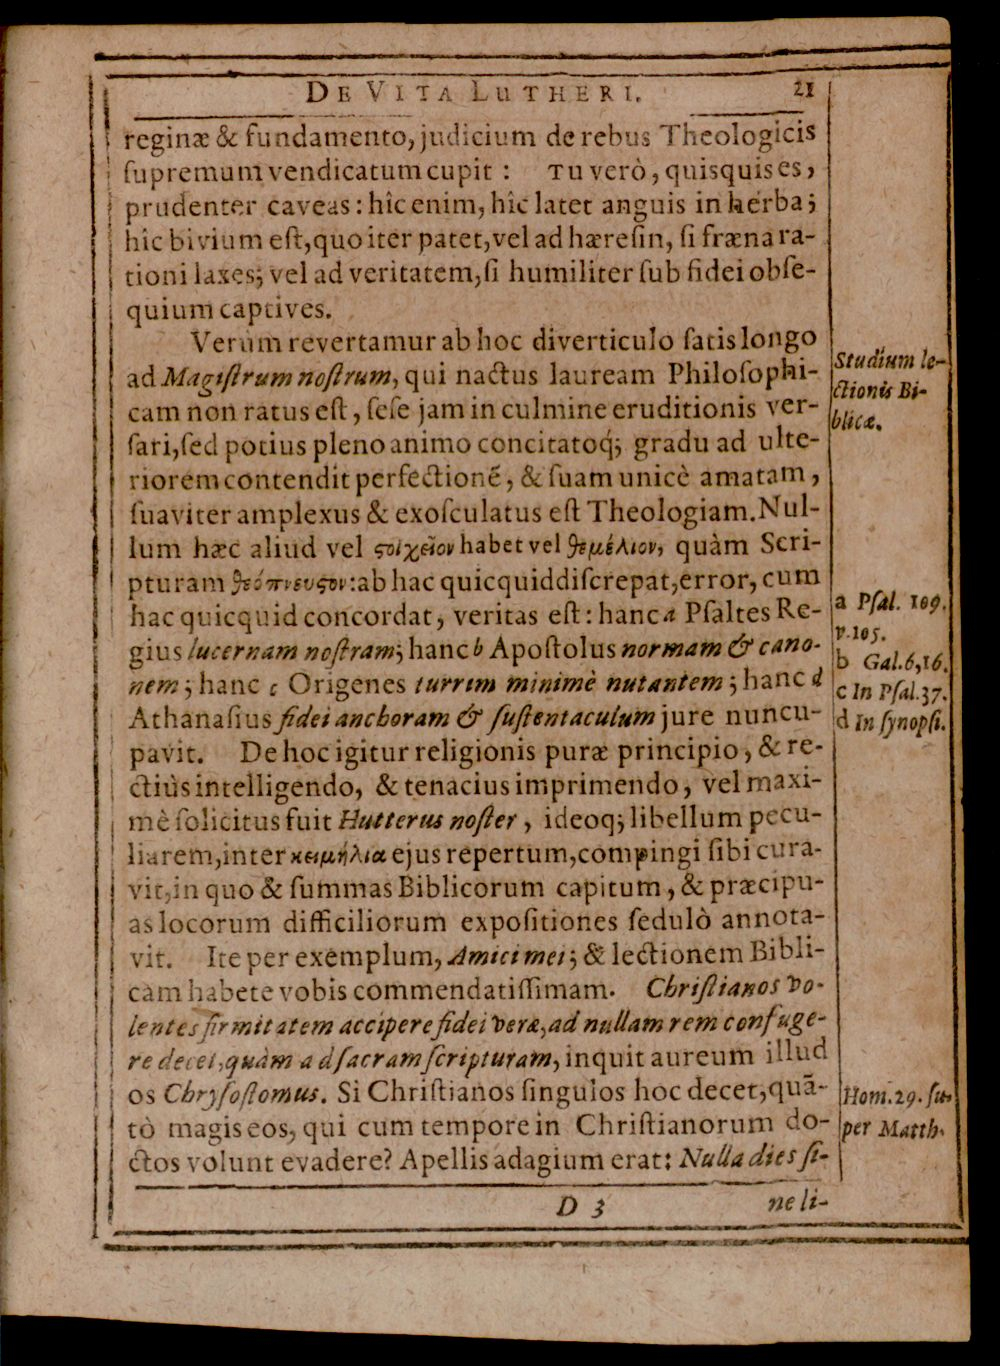 DE VITA LUTHERI. 21
reginæ & fundamento, judicium de rebus Theologicis
ſupremum vendicatum cupit : Tu verò, quisquis es,
prudenter caveas: hîc enim, hîc latet anguis in herba;
hîc bivium eſt, quo iter patet, vel ad hæreſin, ſi fræna ra-
tioni laxes; vel ad veritatem, ſi humiliter ſub fidei obſe-
quium captives.
Verùm revertamur ab hoc diverticulo ſatis longo
ad Magiſtrum noſtrum, qui nactus lauream Philoſophi-
cam non ratus eſt, ſeſe jam in culmine eruditionis ver-
ſari, ſed potius pleno animo concitatoq́; gradu ad ulte-
riorem contendit perfectionẽ, & ſuam unicè amatam,
ſuaviter amplexus & exoſculatus eſt Theologiam. Nul-
lum hæc aliud vel ϛοιχεῖον habet vel θεμέλιον, quàm Scri-
pturam θεόπνευϛον: ab hac quicquid diſcrepat, error, cum
hac quicquid concordat, veritas eſt: hanc a Pſaltes Re-
gius lucernam noſtram; hanc b Apoſtolus normam & cano-
nem; hanc c Origenes turrim minimè nutantem; hanc d
Athanaſius fidei anchoram & ſuſtentaculum jure nuncu-
pavit. De hoc igitur religionis puræ principio, & re-
ctiùs intelligendo, & tenacius imprimendo, vel maxi-
mè ſolicitus fuit Hutterus noſter, ideoq; libellum pecu-
liarem, inter κειμήλια ejus repertum, compingi ſibi cura-
vit, in quo & ſummas Biblicorum capitum, & præcipu-
as locorum difficiliorum expoſitiones ſedulò annota-
vit. Ite per exemplum, Amici mei; & lectionem Bibli-
cam habete vobis commendatiſſimam. Chriſtianos vo-
lentes firmitatem accipere fidei veræ, ad nullam rem confuge-
re decet, quàm ad ſacram ſcripturam, inquit aureum illud
os Chryſoſtomus. Si Chriſtianos ſingulos hoc decet, quã-
tò magis eos, qui cum tempore in Chriſtianorum do-
ctos volunt evadere? Apellis adagium erat: Nulla dies ſi-
D 3 ne li-
Studium le-
ctionis Bi-
blicæ.
a Pſal. 109.
v. 105.
b Gal. 6, 16.
c In Pſal. 37.
d In ſynopſi.
Hom. 29. ſu-
per Matth.